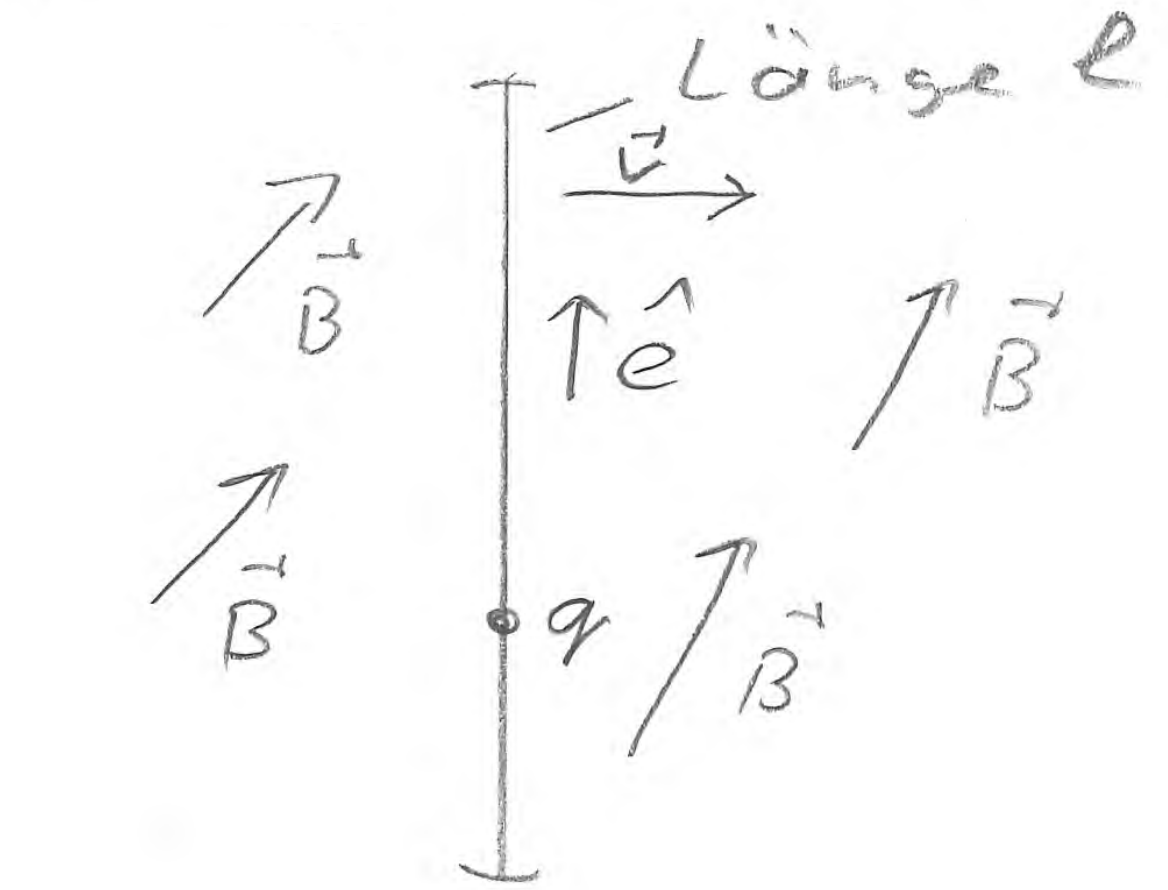 Länge l
v⃗
B⃗
ê
B⃗
B⃗
q
B⃗